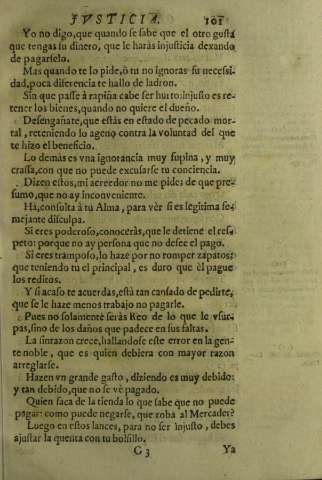 JVSTICIA. 101
Yo no digo, que quando se sabe que el otro gusta
que tengas su dinero, que le harás injusticia dexando
de pagarselo.
Mas quando te lo pide, ò tu no ignoras su necessi-
dad, poca diferencia te hallo de ladron.
Sin que passe à rapiña cabe ser hurto: injusto es re-
tener los bienes, quando no quiere el dueño.
Desengañate, que estàs en estado de pecado mor-
tal, reteniendo lo ageno contra la voluntad del que
te hizo el beneficio.
Lo demàs es vna ignorancia muy supina, y muy
crassa, con que no puede excusarse tu conciencia.
Dizen estos, mi acreedor no me pide: de que pre-
sumo, que no ay inconveniente.
Ha, consulta à tu Alma, para vèr si es legitima se-
mejante disculpa.
Si eres poderoso, conoceràs, que le detiene el res-
peto: porque no ay persona que no desee el pago.
Si eres tramposo, lo haze por no romper zapatos:
que teniendo tu el principal, es duro que èl pague
los reditos.
Y si acaso te acuerdas, està tan cansado de pedirte,
que se le haze menos trabajo no pagarle.
Pues no solamente seràs Reo de lo que le vsur-
pas, sino de los daños que padece en sus faltas.
La sinrazon crece, hallandose este error en la gen-
te noble, que es quien debiera con mayor razon
arreglarse.
Hazen vn grande gasto, diziendo es muy debido:
y tan debido, que no se vè pagado.
Quien saca de la tienda lo que sabe que no puede
pagar: como puede negarse, que roba al Mercader?
Luego en estos lances, para no ser injusto, debes
ajustar la quenta con tu bolsillo.
G 3 Ya